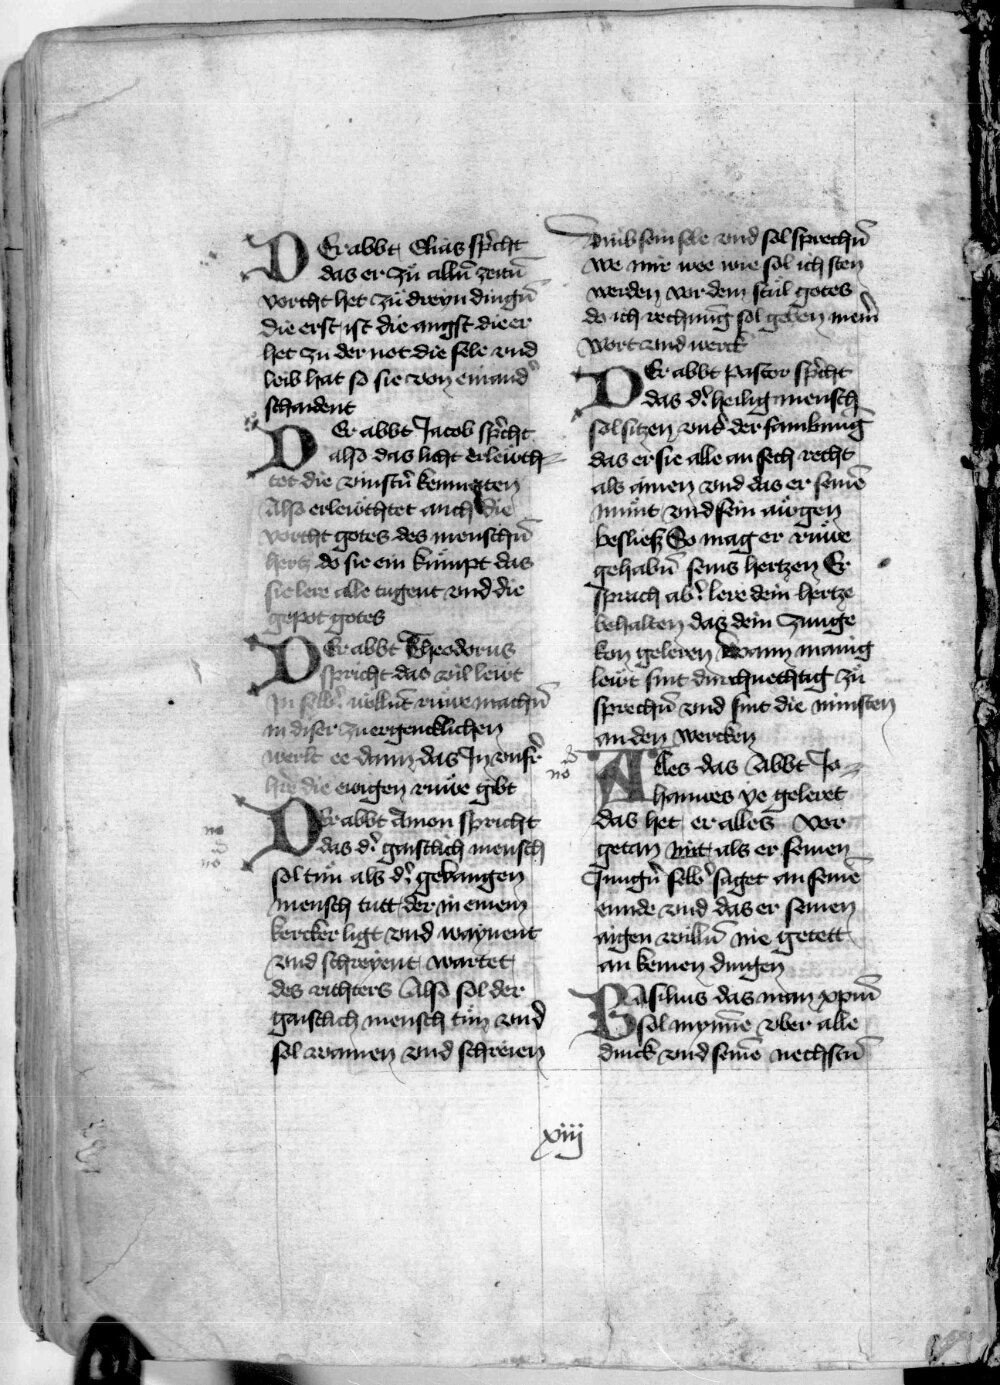 DEr abbt Elias spͥcht
das er zuͦ alln̄ zeitn̄
vorcht het zuͦ dreyn dingn̄
die erst ist die angst die er
het zu der not die sele vnd
leib hat so sie von einand᾽
schaident
DEr abbt Jacob spͥcht
also das licht erleuͦch-
tet die vinstn̄ kemnaten
Also erleuͦchtet auch die
vorcht gotes des menschn̄
hertz do sie ein kuͦmpt das
sie lere alle tugent vnd die
gepot gotes
DEr abbt Theodorus
spricht das vil leuͦt
In selb᾽ wellnt ruͦwe machn̄
in diser zuergencklichen
werlt ee dann das In vnser
hre die ewigen ruͦwe gibt
no
no
DEr abbt Amon spricht
das d᾽ gaistlich mensch
sol tuͦn als d᾽ gevangen
mensch tutt der in einem
kercker ligt vnd waynent
vnd schreyent wartet
des richters Also sol der
gaistlich mensch tuͦn vnd
sol wainen vnd schreien
vmb sein sele vnd sol sprechn̄
we mir wee wie sol ich sten
werden vor dem stul gotes
do ich rechnūg sol geben meinͬ
wort vnd werck
DEr abbt pastor spͥcht
das d᾽ heilig mensch
sol sitzen vnt᾽ der samnūg
das er sie alle an sech recht
als ainen vnd das er seinē
muͦnt vnd sein awgen
besliesz So mag er ruͦwe
gehabn̄ seins hertzen Er
sprach ab᾽ lere dein hertze
behalten daz dein zunge
kon geleren Wann manig
leuͦt sint durchnechtig zuͦ
sprechn̄ vnd sint die minsten
an den wercken
no
Alles das Abbt Jo-
hannes ye geleret
das het er alles vor
getan mit als er seinen
Jungn̄ selb᾽ saget an seinē
ennde vnd das er seinen
aigen willn̄ nie getett
an keinen dingen
BAsilius das man xpm̄
sol mynne vber alle
dinck vnd seinē nechstn̄
xiij